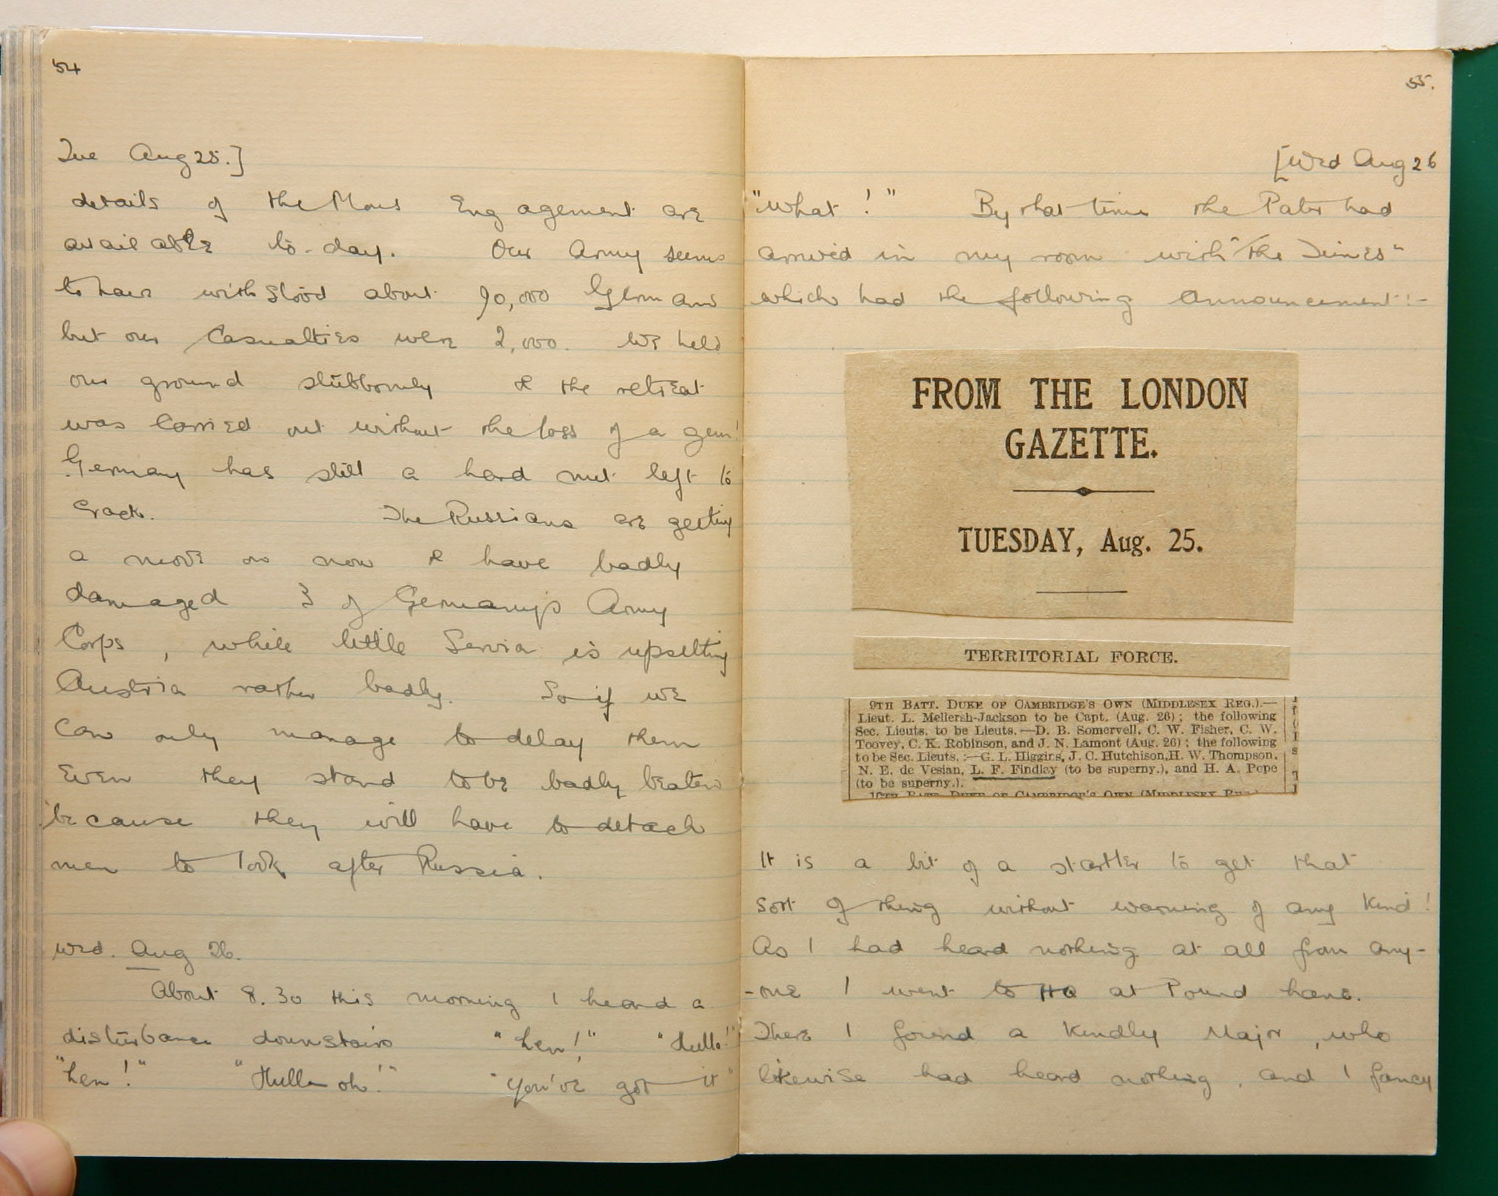 54
Tue Aug 25.]
details of the Mons Engagement are
available to-day. Our Army seems
to have withstood about 90,000 Germans
but our casualties were 2,000. We held
our ground stubbornly & the retreat
was carried out without the loss of a gun!
Germany has still a hard nut left to
crack. The Russians are getting
a move on now & have badly
damaged 3 of Germany's Army
Corps, while little Servia is upsetting
Austria rather badly. So if we
can only manage to delay them
even they stand to be badly beaten
because they will have to detach
men to look after Russia.
Wed. Aug 26.
About 8.30 this morning I heard a
disturbance downstairs "Len!" "Hullo!"
"Len!" "Hullo oh!" "You've got it"
55.
[Wed Aug 26
"What!" By that time the Pater had
arrived in my room with "the Times"
which had the following announcement:-
FROM THE LONDON
GAZETTE.
TUESDAY, Aug. 25.
TERRITORIAL FORCE.
9TH BATT. DUKE OF CAMBRIDGE'S OWN (MIDDLESEX REG.).—
Lieut. L. Mellersh-Jackson to be Capt. (Aug. 26); the following
Sec. Lieuts. to be Lieuts.—D. B. Somervell, C. W. Fisher, C. W.
Toovey, C. K. Robinson, and J. N. Lamont (Aug. 26); the following
to be Sec. Lieuts.:—G. L. Higgins, J. C. Hutchison, H. W. Thompson,
N. E. de Vesian, L. F. Findlay (to be superny.), and H. A. Pope
(to be superny.).
10TH BATT. DUKE OF CAMBRIDGE'S OWN (MIDDLESEX REG.)
It is a bit of a startler to get that
sort of thing without warning of any kind!
As I had heard nothing at all from any-
-one I went to HQ at Pound Lane.
There I found a kindly Major, who
likewise had heard nothing, and I fancy